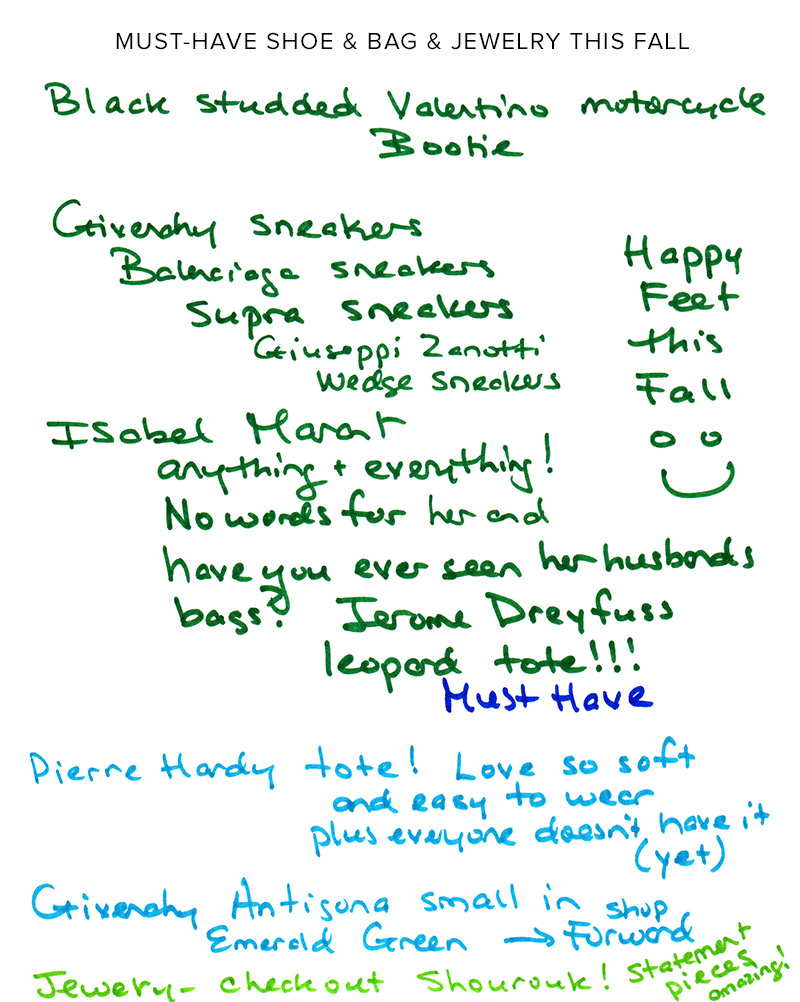 MUST-HAVE SHOE & BAG & JEWELRY THIS FALL
Black studded Valentino motorcycle
Bootie
Givenchy sneakers
Balenciaga sneakers
Supra sneakers
Giuseppi Zanotti
Wedge sneakers
Happy
Feet
this
Fall
Isabel Marant
anything + everything!
No words for her and
have you ever seen her husbands
bags? Jerome Dreyfuss
leopard tote!!!
Must Have
Pierre Hardy tote! Love so soft
and easy to wear
plus everyone doesn't have it
(yet)
Givenchy Antigona small in shop
Emerald Green → Forward
Jewery - checkout Shourouk! Statement
pieces
amazing!